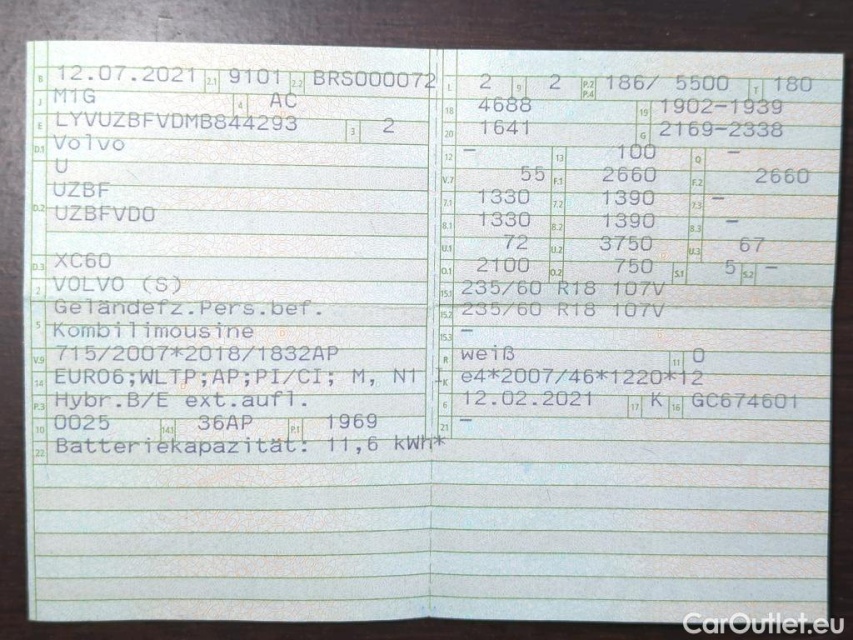 B 12.07.2021 2.1 9101 2.2 BRS000072
J M1G 4 AC
E LYVUZBFVDMB844293 3 2
D.1 Volvo
U
UZBF
D.2 UZBFVD0
D.3 XC60
2 VOLVO (S)
Geländefz.Pers.bef.
5 Kombilimousine
V.9 715/2007*2018/1832AP
14 EURO6;WLTP;AP;PI/CI; M, N1 I
P.3 Hybr.B/E ext.aufl.
10 0025 14.1 36AP P.1 1969
22 Batteriekapazität: 11,6 kWh*
L 2 9 2 P.2 P.4 186/ 5500 T 180
18 4688 19 1902-1939
20 1641 G 2169-2338
12 – 13 100 Q –
V.7 55 F.1 2660 F.2 2660
7.1 1330 7.2 1390 7.3 –
8.1 1330 8.2 1390 8.3 –
U.1 72 U.2 3750 U.3 67
O.1 2100 O.2 750 S.1 5 S.2 –
15.1 235/60 R18 107V
15.2 235/60 R18 107V
15.3 –
R weiß 11 0
K e4*2007/46*1220*12
6 12.02.2021 17 K 16 GC674601
21 –
CarOutlet.eu